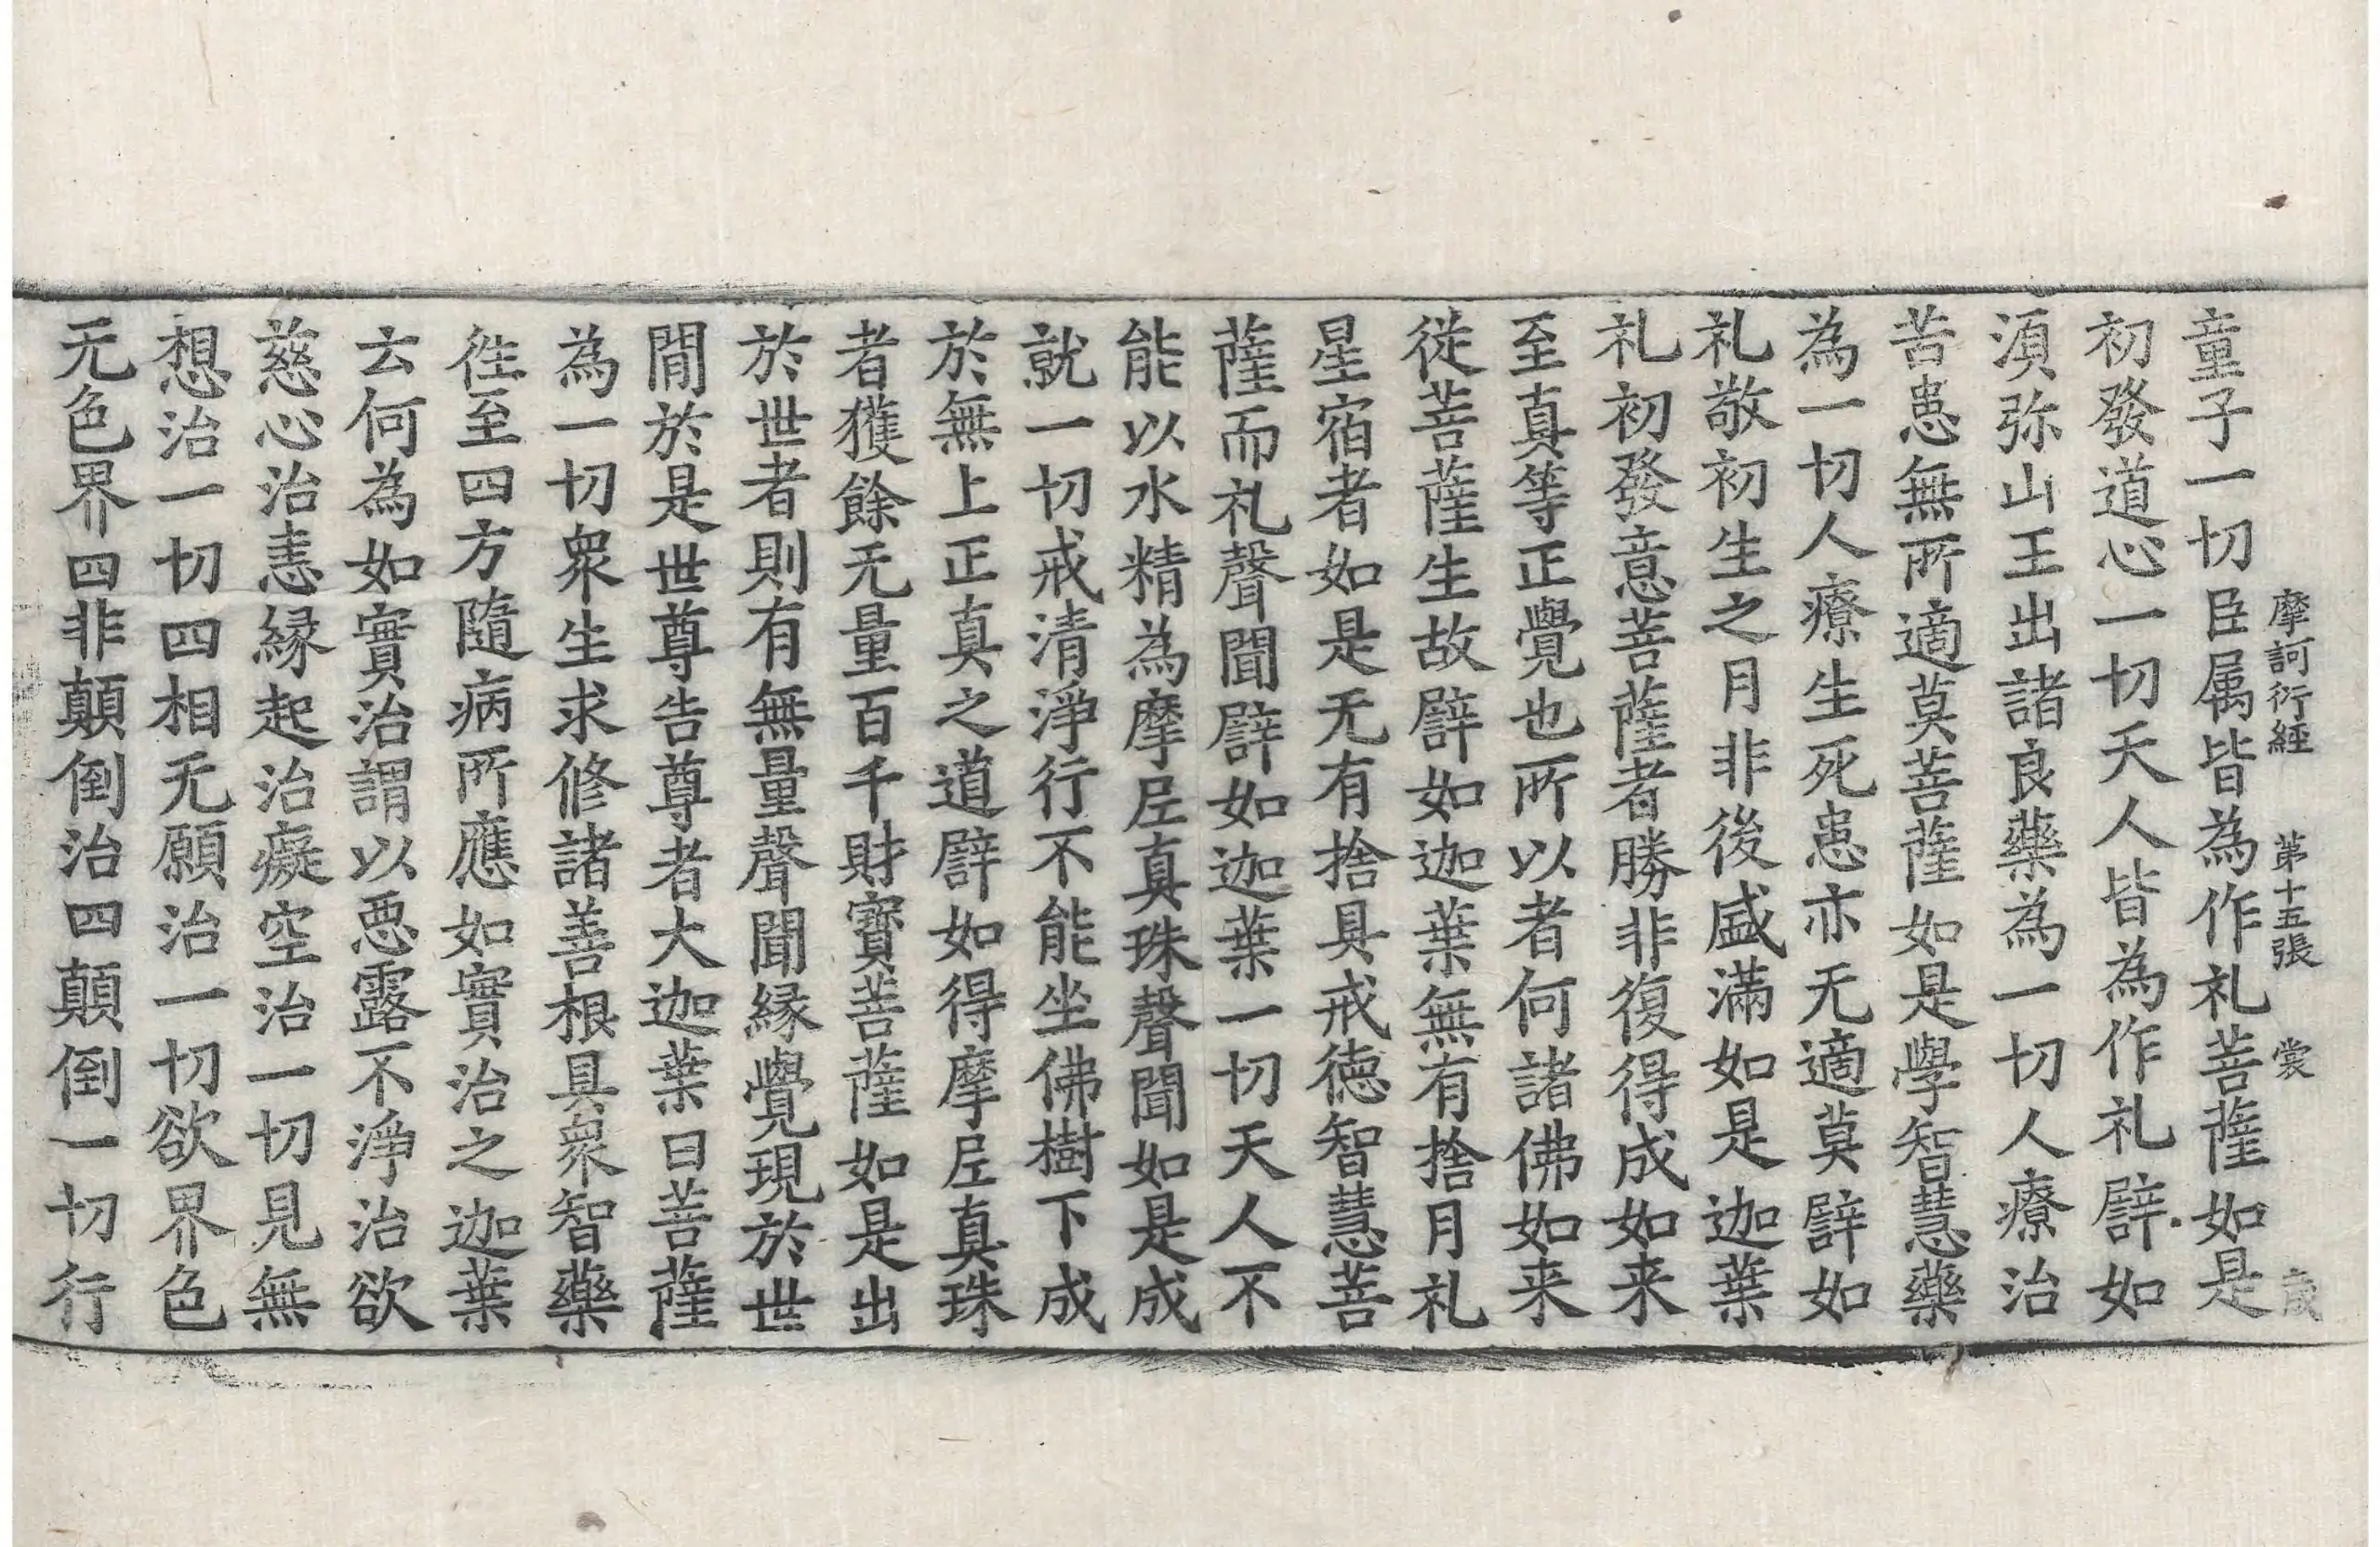 摩訶衍經 第十五張 裳
童子一切臣属皆為作礼菩薩如是
初發道心一切天人皆為作礼譬如
湏弥山王出諸良藥為一切人療治
苦患無所適莫菩薩如是學智慧藥
為一切人療生死患亦无適莫譬如
礼敬初生之月非後盛滿如是迦葉
礼初發意菩薩者勝非復得成如来
至真等正覺也所以者何諸佛如来
從菩薩生故譬如迦葉無有捨月礼
星宿者如是无有捨具戒德智慧菩
薩而礼聲聞譬如迦葉一切天人不
能以水精為摩尼真珠聲聞如是成
就一切戒清淨行不能坐佛樹下成
於無上正真之道譬如得摩尼真珠
者獲餘无量百千財寶菩薩如是出
於世者則有無量聲聞縁覺現於世
閒於是世尊告尊者大迦葉曰菩薩
為一切衆生求修諸善根具衆智藥
徃至四方隨病所應如實治之迦葉
云何為如實治謂以惡露不淨治欲
慈心治恚縁起治癡空治一切見無
想治一切四相无願治一切欲界色
无色界四非顛倒治四顛倒一切行